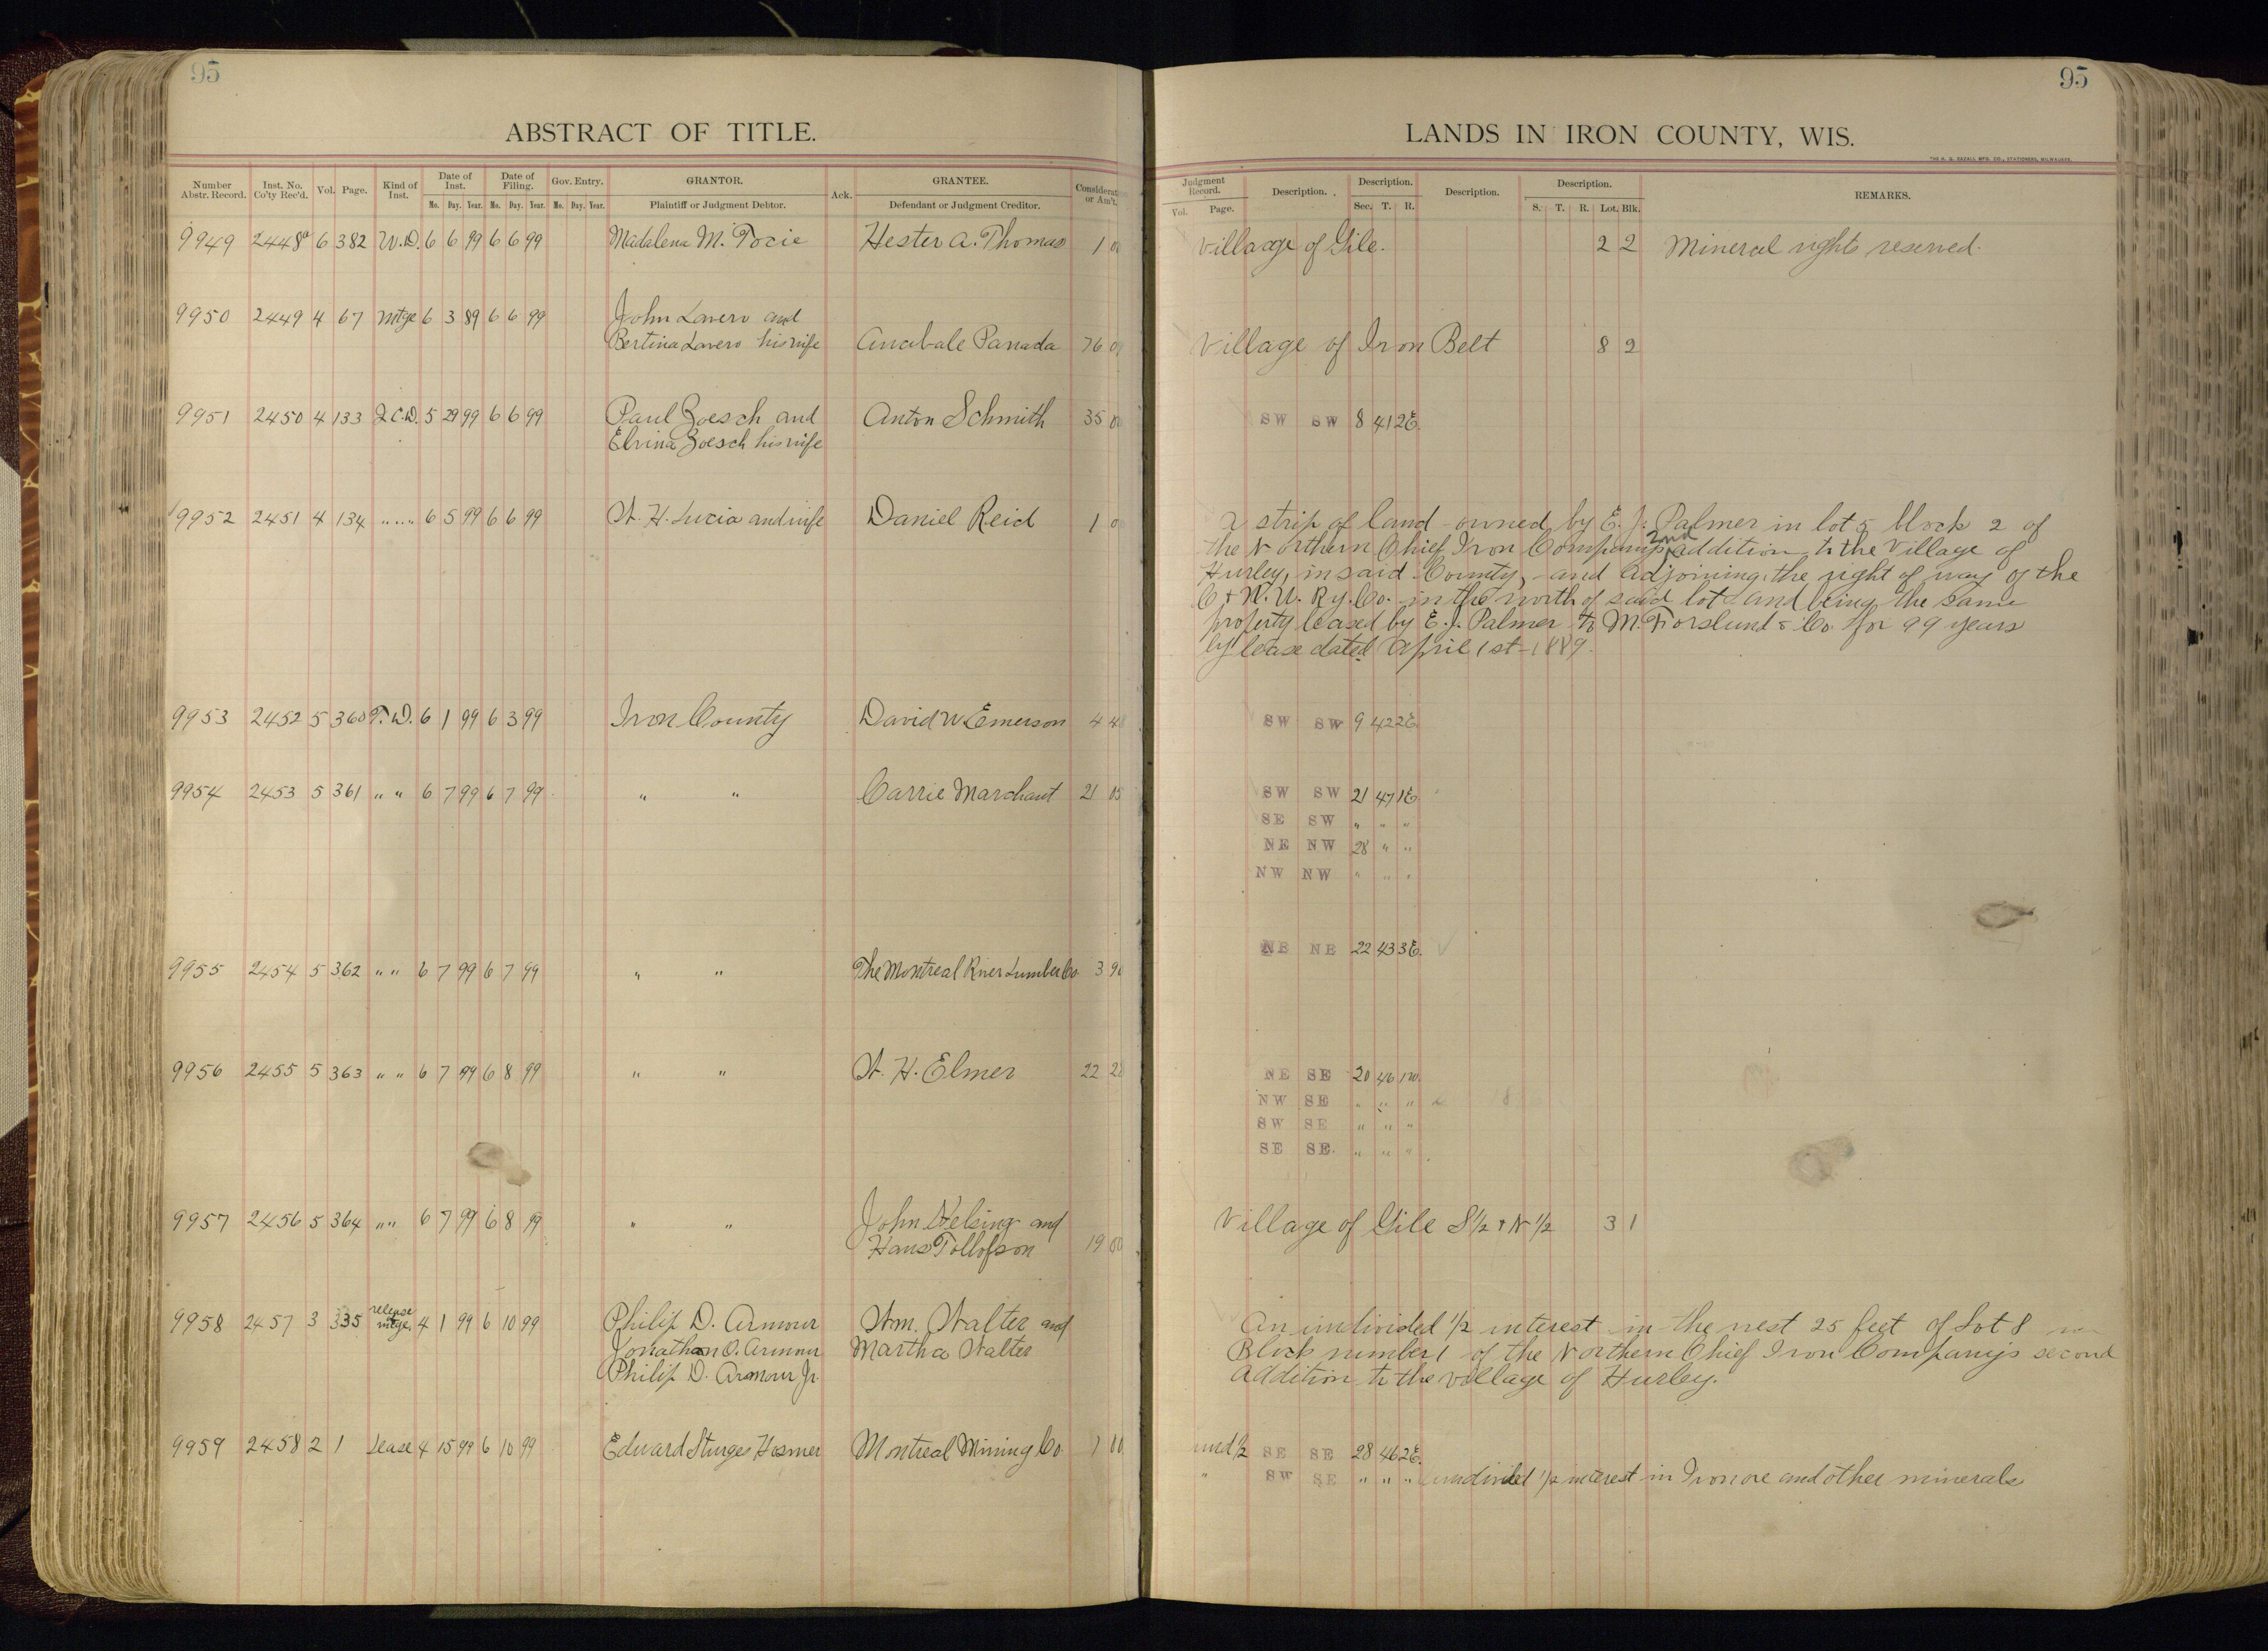 95
ABSTRACT OF TITLE.
Number Abstr. Record. Inst. No. Co'ty Rec'd. Vol. Page. Kind of Inst. Date of Inst. Date of Filing. Gov. Entry. GRANTOR. Ack. GRANTEE. Considerat or Am't.
Mo. Day. Year. Mo. Day. Year. Mo. Day. Year. Plaintiff or Judgment Debtor. Defendant or Judgment Creditor.
9949 2448a 6 382 W.D. 6 6 99 6 6 99 Madalena M. Hester A. Thomas 1 00
9950 2449 4 67 Mtge 6 3 89 6 6 99 John Lavero and
Bertina Lavero his wife Anabale Panada 76 0
9951 2450 4 133 Q.C.D. 5 29 99 6 6 99 Paul Zoesch and Anton Schmith 35 00
Elvina Zoesch his wife
9952 2451 4 134 " " " 6 5 99 6 6 99 W. H. Lucia and wife Daniel Reid 1 00
9953 2452 5 360 T.D. 6 1 99 6 3 99 Iron County David W Emerson 4 4
9954 2453 5 361 " " 6 7 99 6 7 99 " " Carrie Marchant 21 05
9955 2454 5 362 " " 6 7 99 6 7 99 " " The Montreal River Lumber Co 3 9
9956 2455 5 363 " " 6 7 99 6 8 99 " " W. H. Elmer 22 2
9957 2456 5 364 " " 6 7 99 6 8 99 " " John Helsing and
Hans Tollofson 19 00
9958 2457 3 335 release mtge 4 1 99 6 10 99 Philip D. Armour Wm. Walter and
Jonathan O. Armour Martha Walter
Philip D. Armour Jr.
9959 2458 2 1 Lease 4 15 99 6 10 99 Edward Sturges Hosmer Montreal Mining Co 1 00
95
LANDS IN IRON COUNTY, WIS.
Judgment Record. Description. Description. Description. Description. REMARKS.
Vol. Page. Sec. T. R. S. T. R. Lot. Blk.
Village of Gile. 2 2 Mineral rights reserved.
Village of Iron Belt 8 2
SW SW 8 41 2E.
A strip of land owned by E. J. Palmer in lot 5 block 2 of
the Northern Chief Iron Companys 2nd addition to the Village of
Hurley, in said County, and adjoining the right of way of the
C & N.W. Ry. Co. in the north of said lot and being the same
property leased by E. J. Palmer to M. Forslund & Co for 99 years
by lease dated April 1st 1889.
SW SW 9 42 2E.
SW SW 21 47 1E.
SE SW " " "
NE NW 28 " "
NW NW " " "
NE NE 22 43 3E.
NE SE 20 46 1W.
NW SE " " "
SW SE " " "
SE SE. " " "
Village of Gile S 1/2 & N 1/2 3 1
An undivided 1/2 interest in the west 25 feet of Lot 8
Block number 1 of the Northern Chief Iron Companys second
addition to the village of Hurley.
und 1/2 SE SE 28 46 2E.
" SW SE " " " undivided 1/2 interest in Iron ore and other minerals